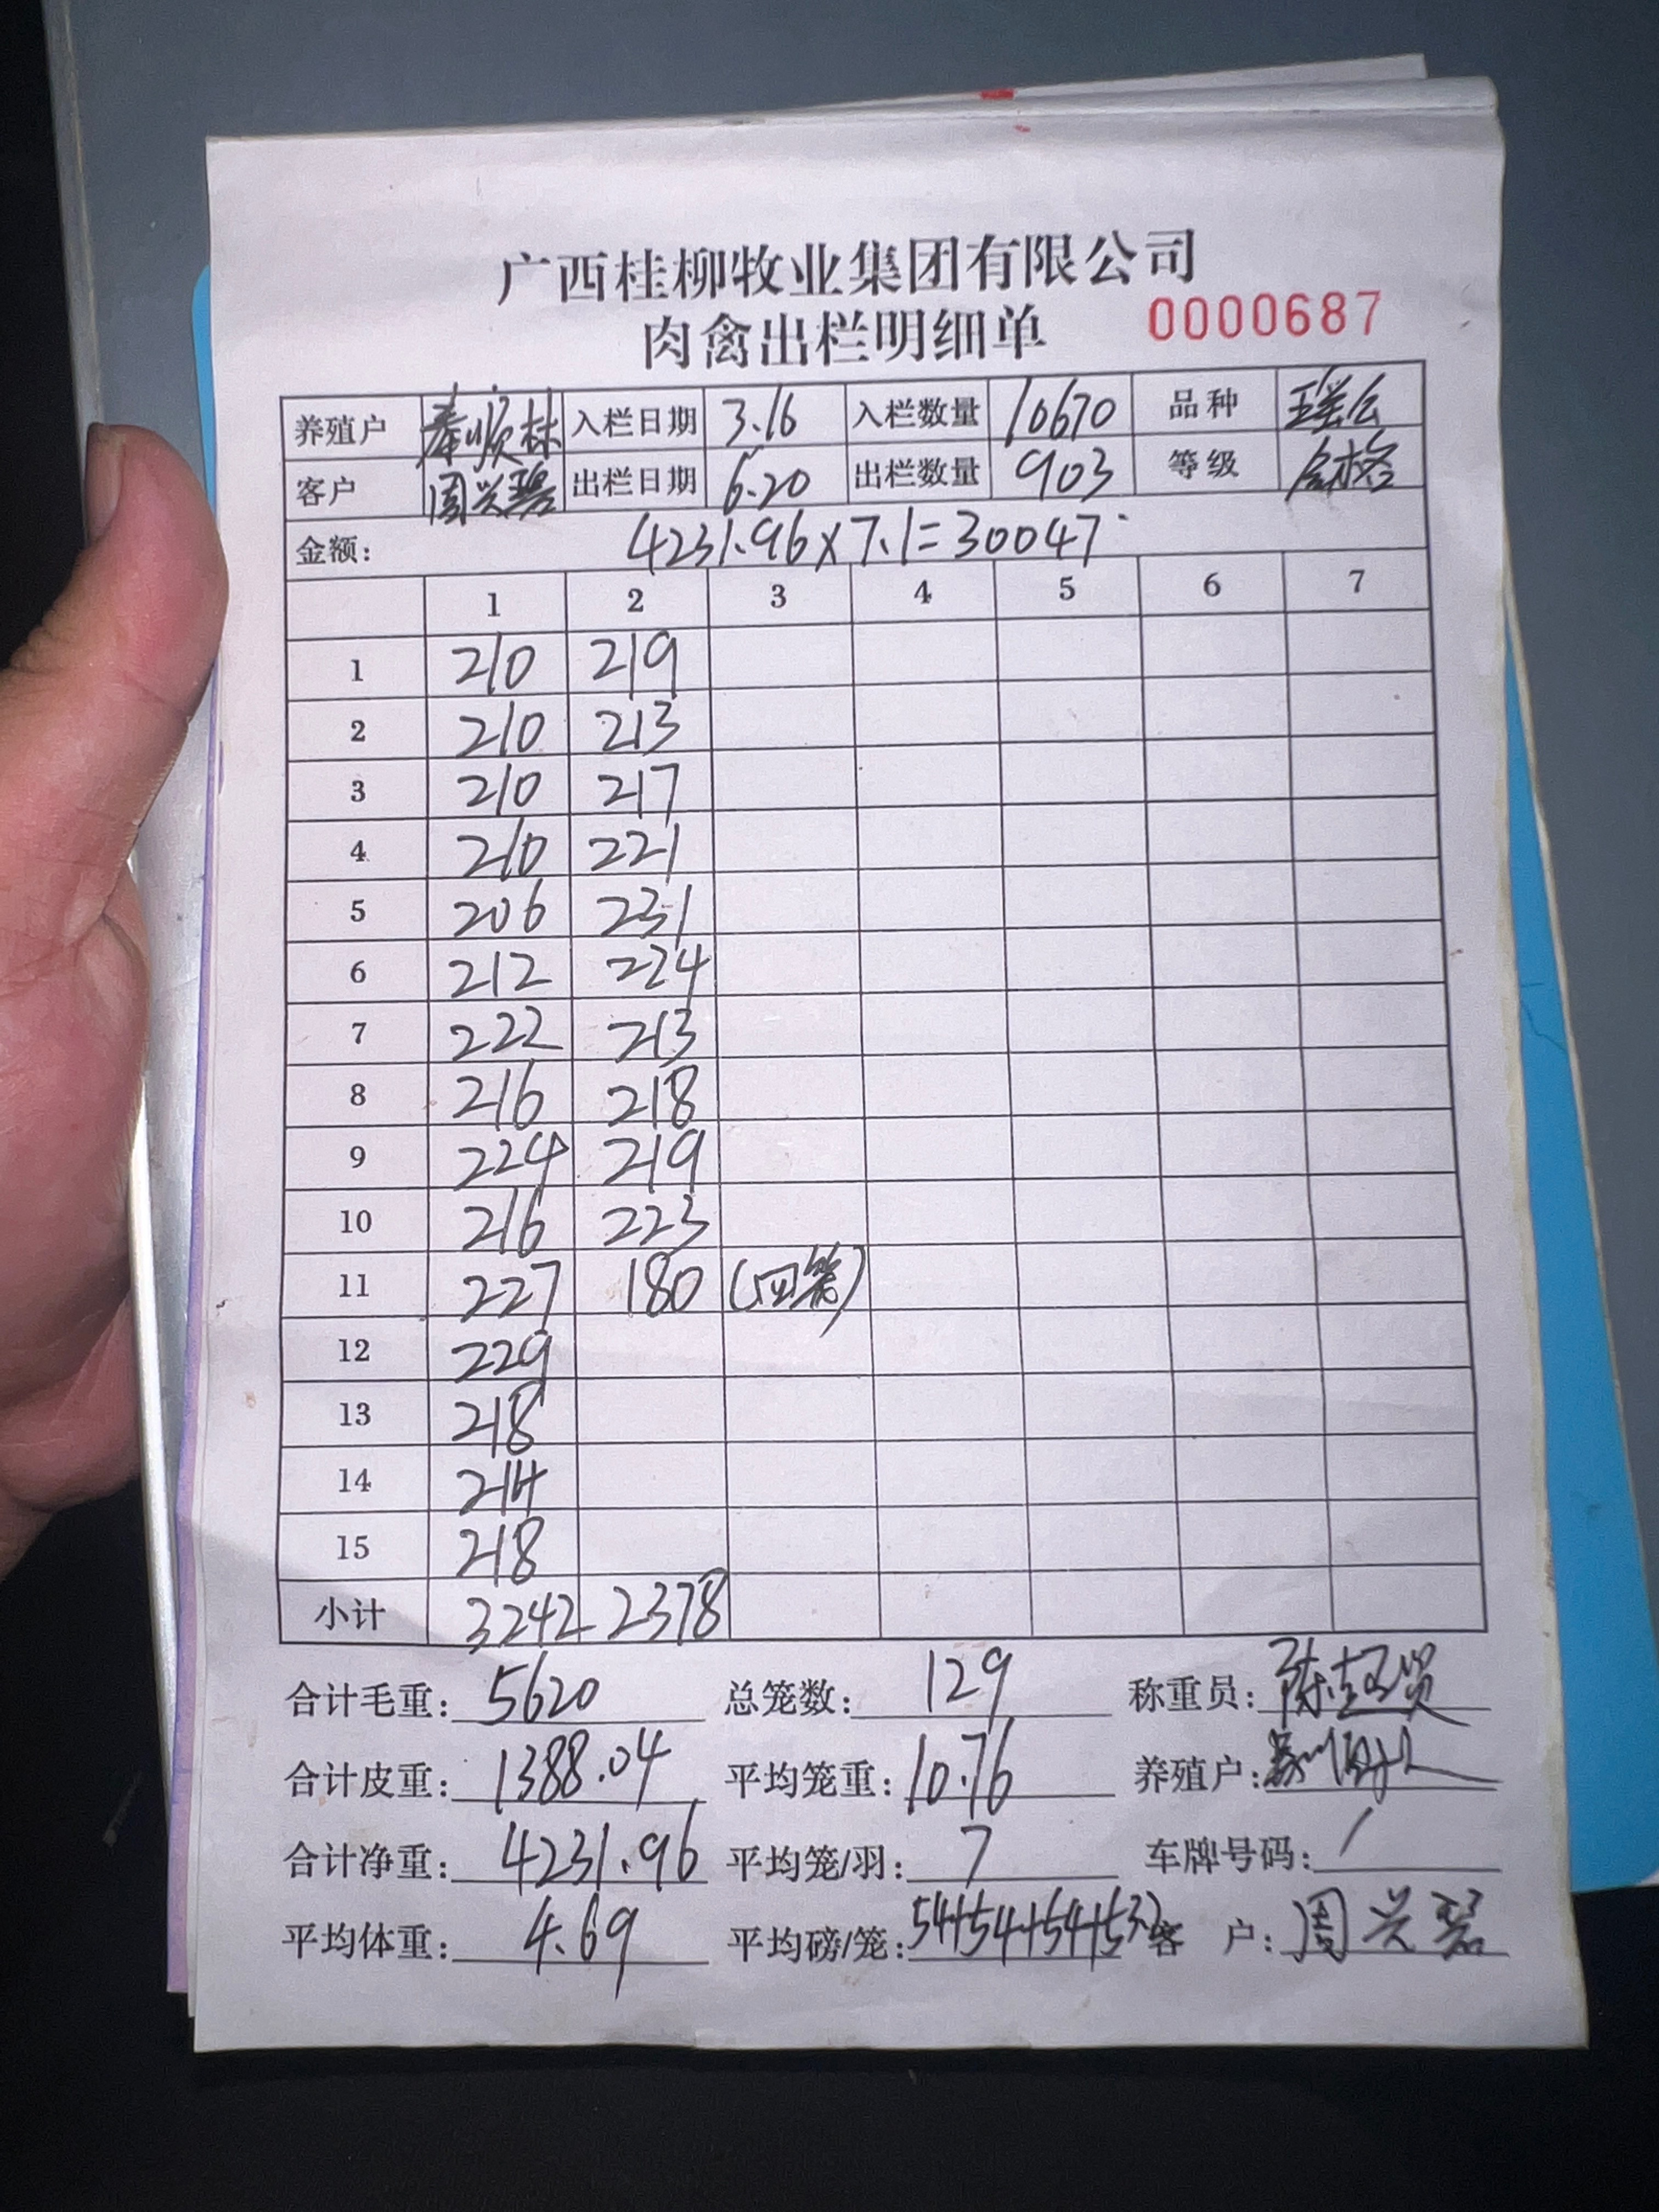 广西桂柳牧业集团有限公司
肉禽出栏明细单 0000687
养殖户 秦顺林 入栏日期 3.16 入栏数量 10670 品种
客户 周兴碧 出栏日期 6.20 出栏数量 903 等级 合格
金额: 4231.96×7.1=30047
1 2 3 4 5 6 7
1 210 219
2 210 213
3 210 217
4 210 221
5 206 231
6 212 224
7 222 213
8 216 218
9 224 219
10 216 223
11 227 180 (四笼)
12 229
13 218
14 214
15 218
小计 3242 2378
合计毛重: 5620 总笼数: 129 称重员:
合计皮重: 1388.04 平均笼重: 10.76 养殖户:
合计净重: 4231.96 平均笼/羽: 7 车牌号码: /
平均体重: 4.69 平均磅/笼: 54+54+54+53 客 户: 周兴碧